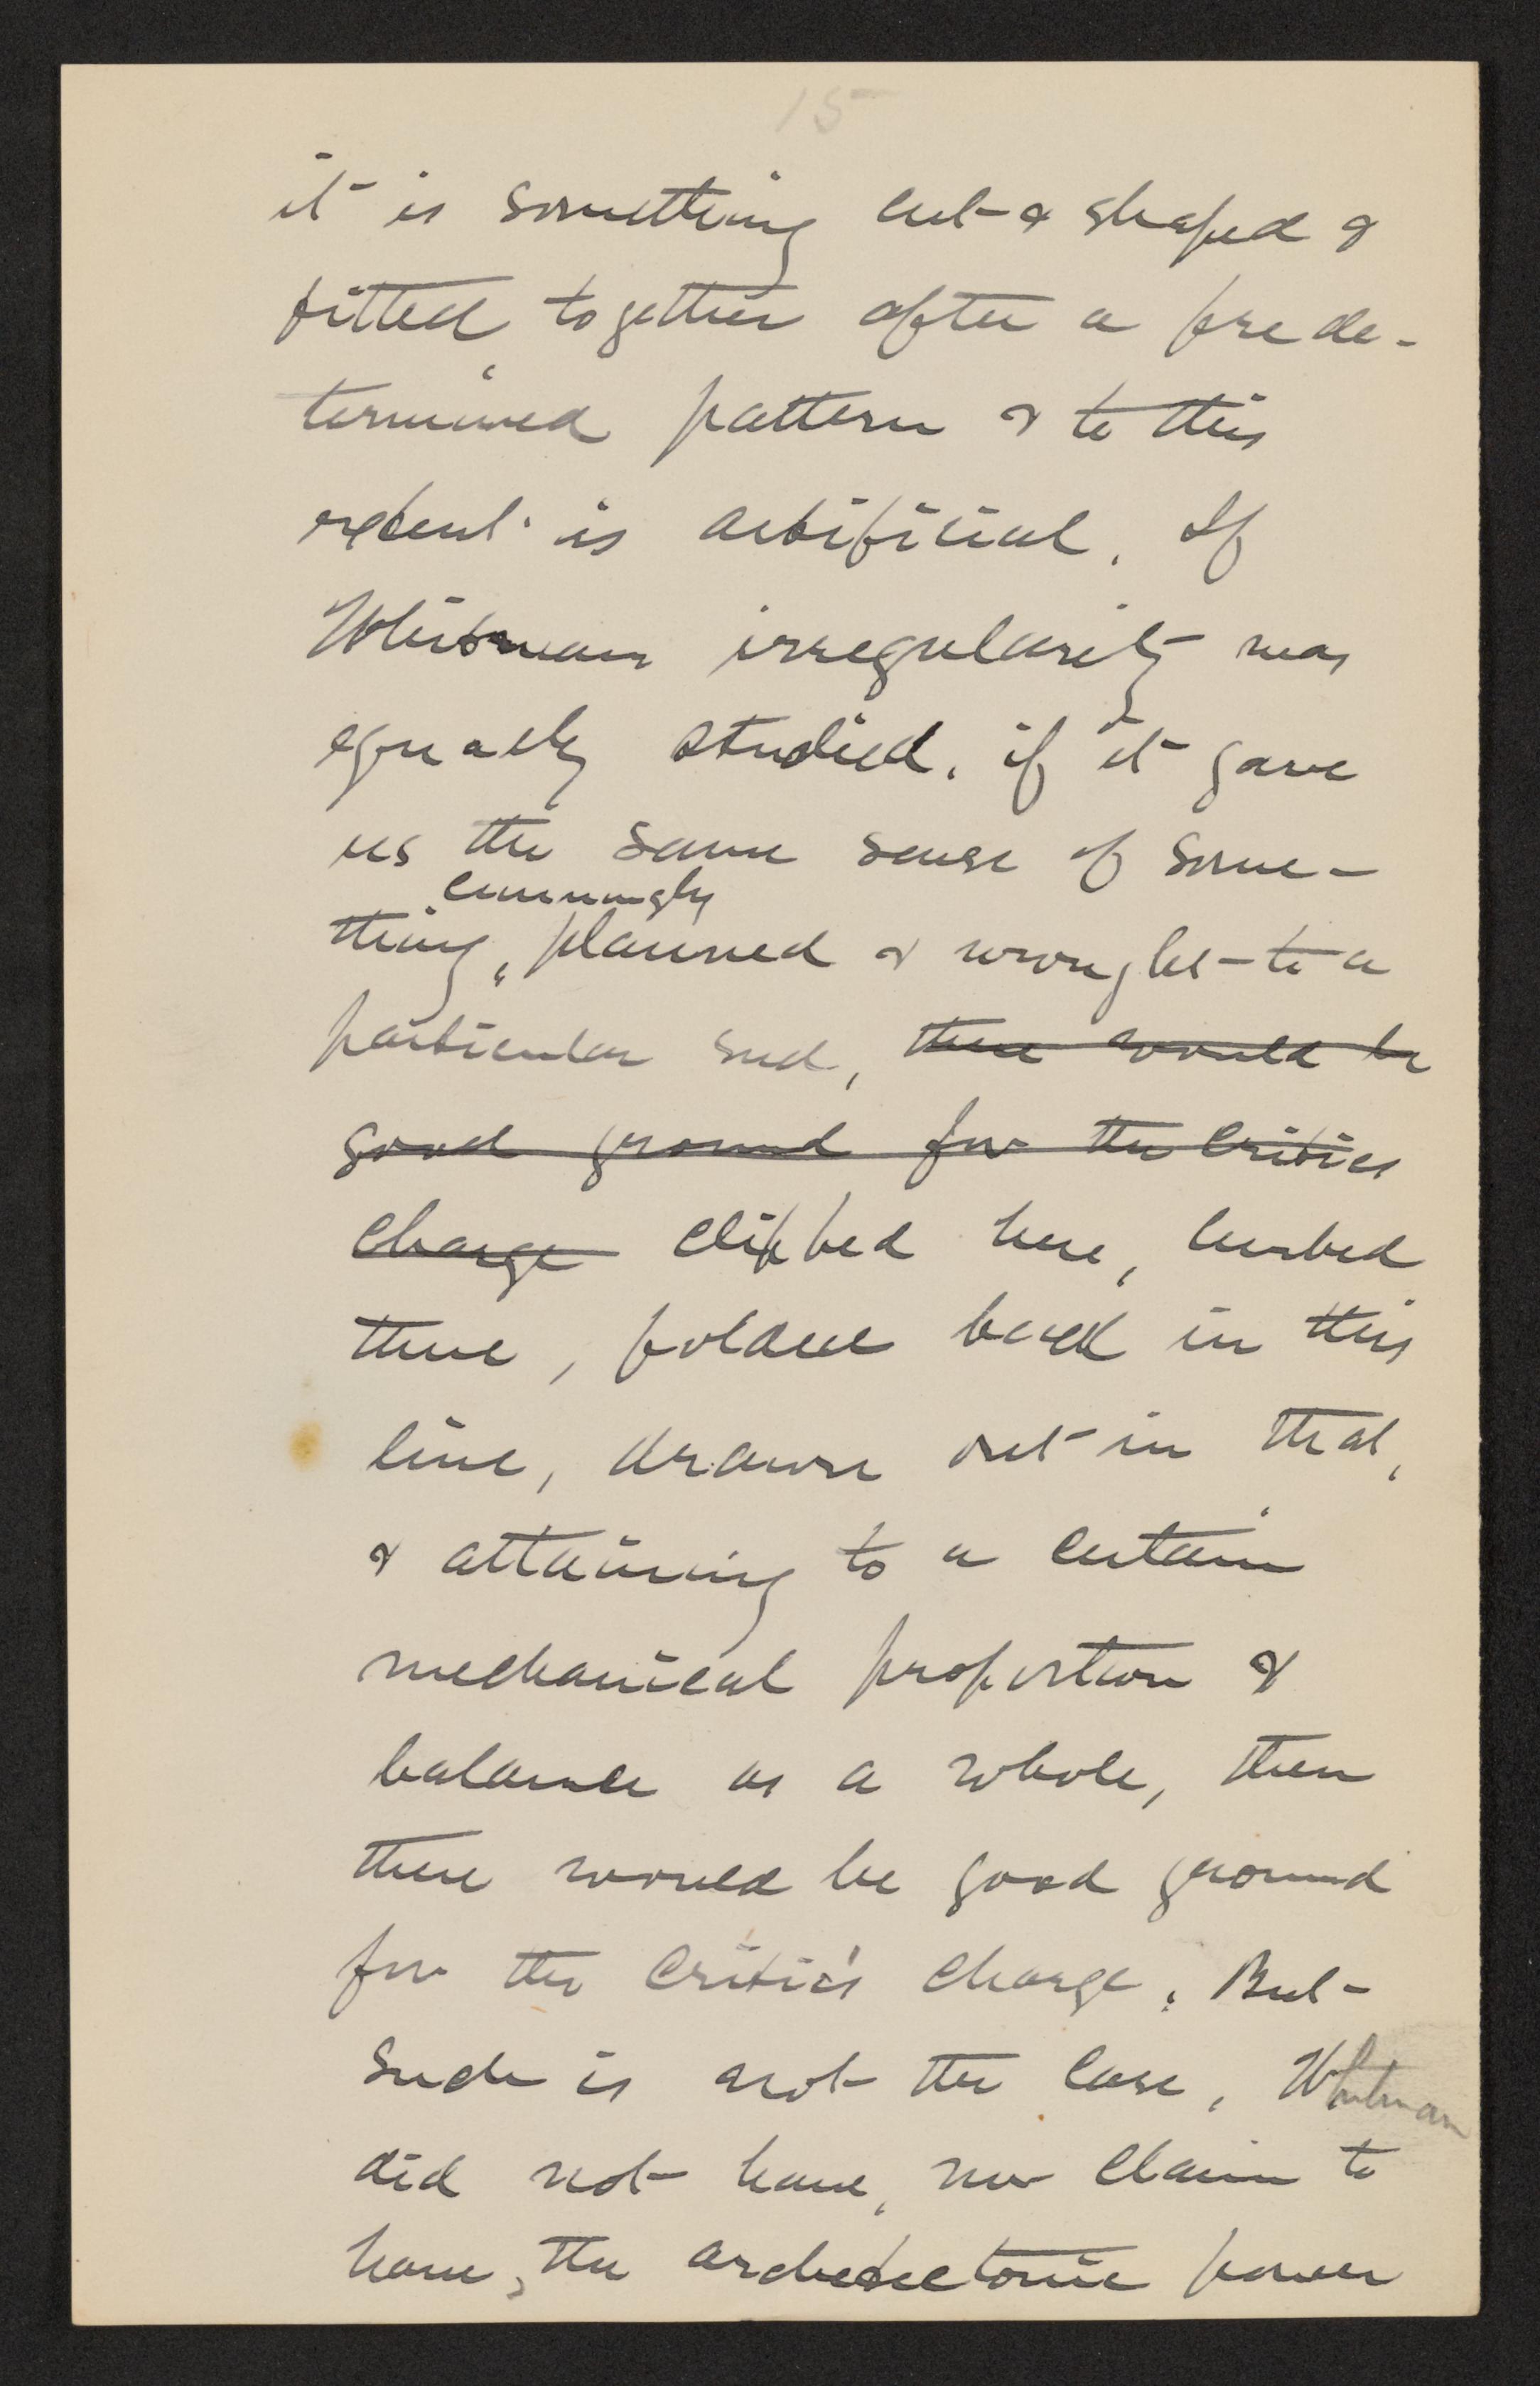 15
it is something cut & shaped &
fitted together after a prede-
termined pattern & to this
extent is artificial. If
Whitman irregularity was
equally studied, if it gave
us the same sense of some-
cunningly
thing planned & wrought to a
particular end, there would be
good ground for the critics
charge clipped here, curbed
there, folded back in this
line, drawn out in that,
& attaining to a certain
mechanical proportion &
balance as a whole, then
there would be good ground
for the critic's charge. But
such is not the case. Whitman
did not have, nor claim to
have, the architectonic power